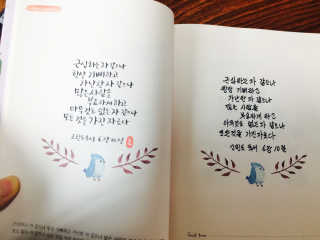 근심하는 자 같으나
항상 기뻐하고
가난한 자 같으나
많은 사람을
부요하게 하고
아무것도 없는 자 같으나
모든 것을 가진 자로다
고린도후서 6장 10절
근심하는 자 같으나
항상 기뻐하고
가난한 자 같으나
많은 사람을
부요하게 하고
아무것도 없는 자 같으나
모든것을 가진자로다
고린도후서 6장 10절